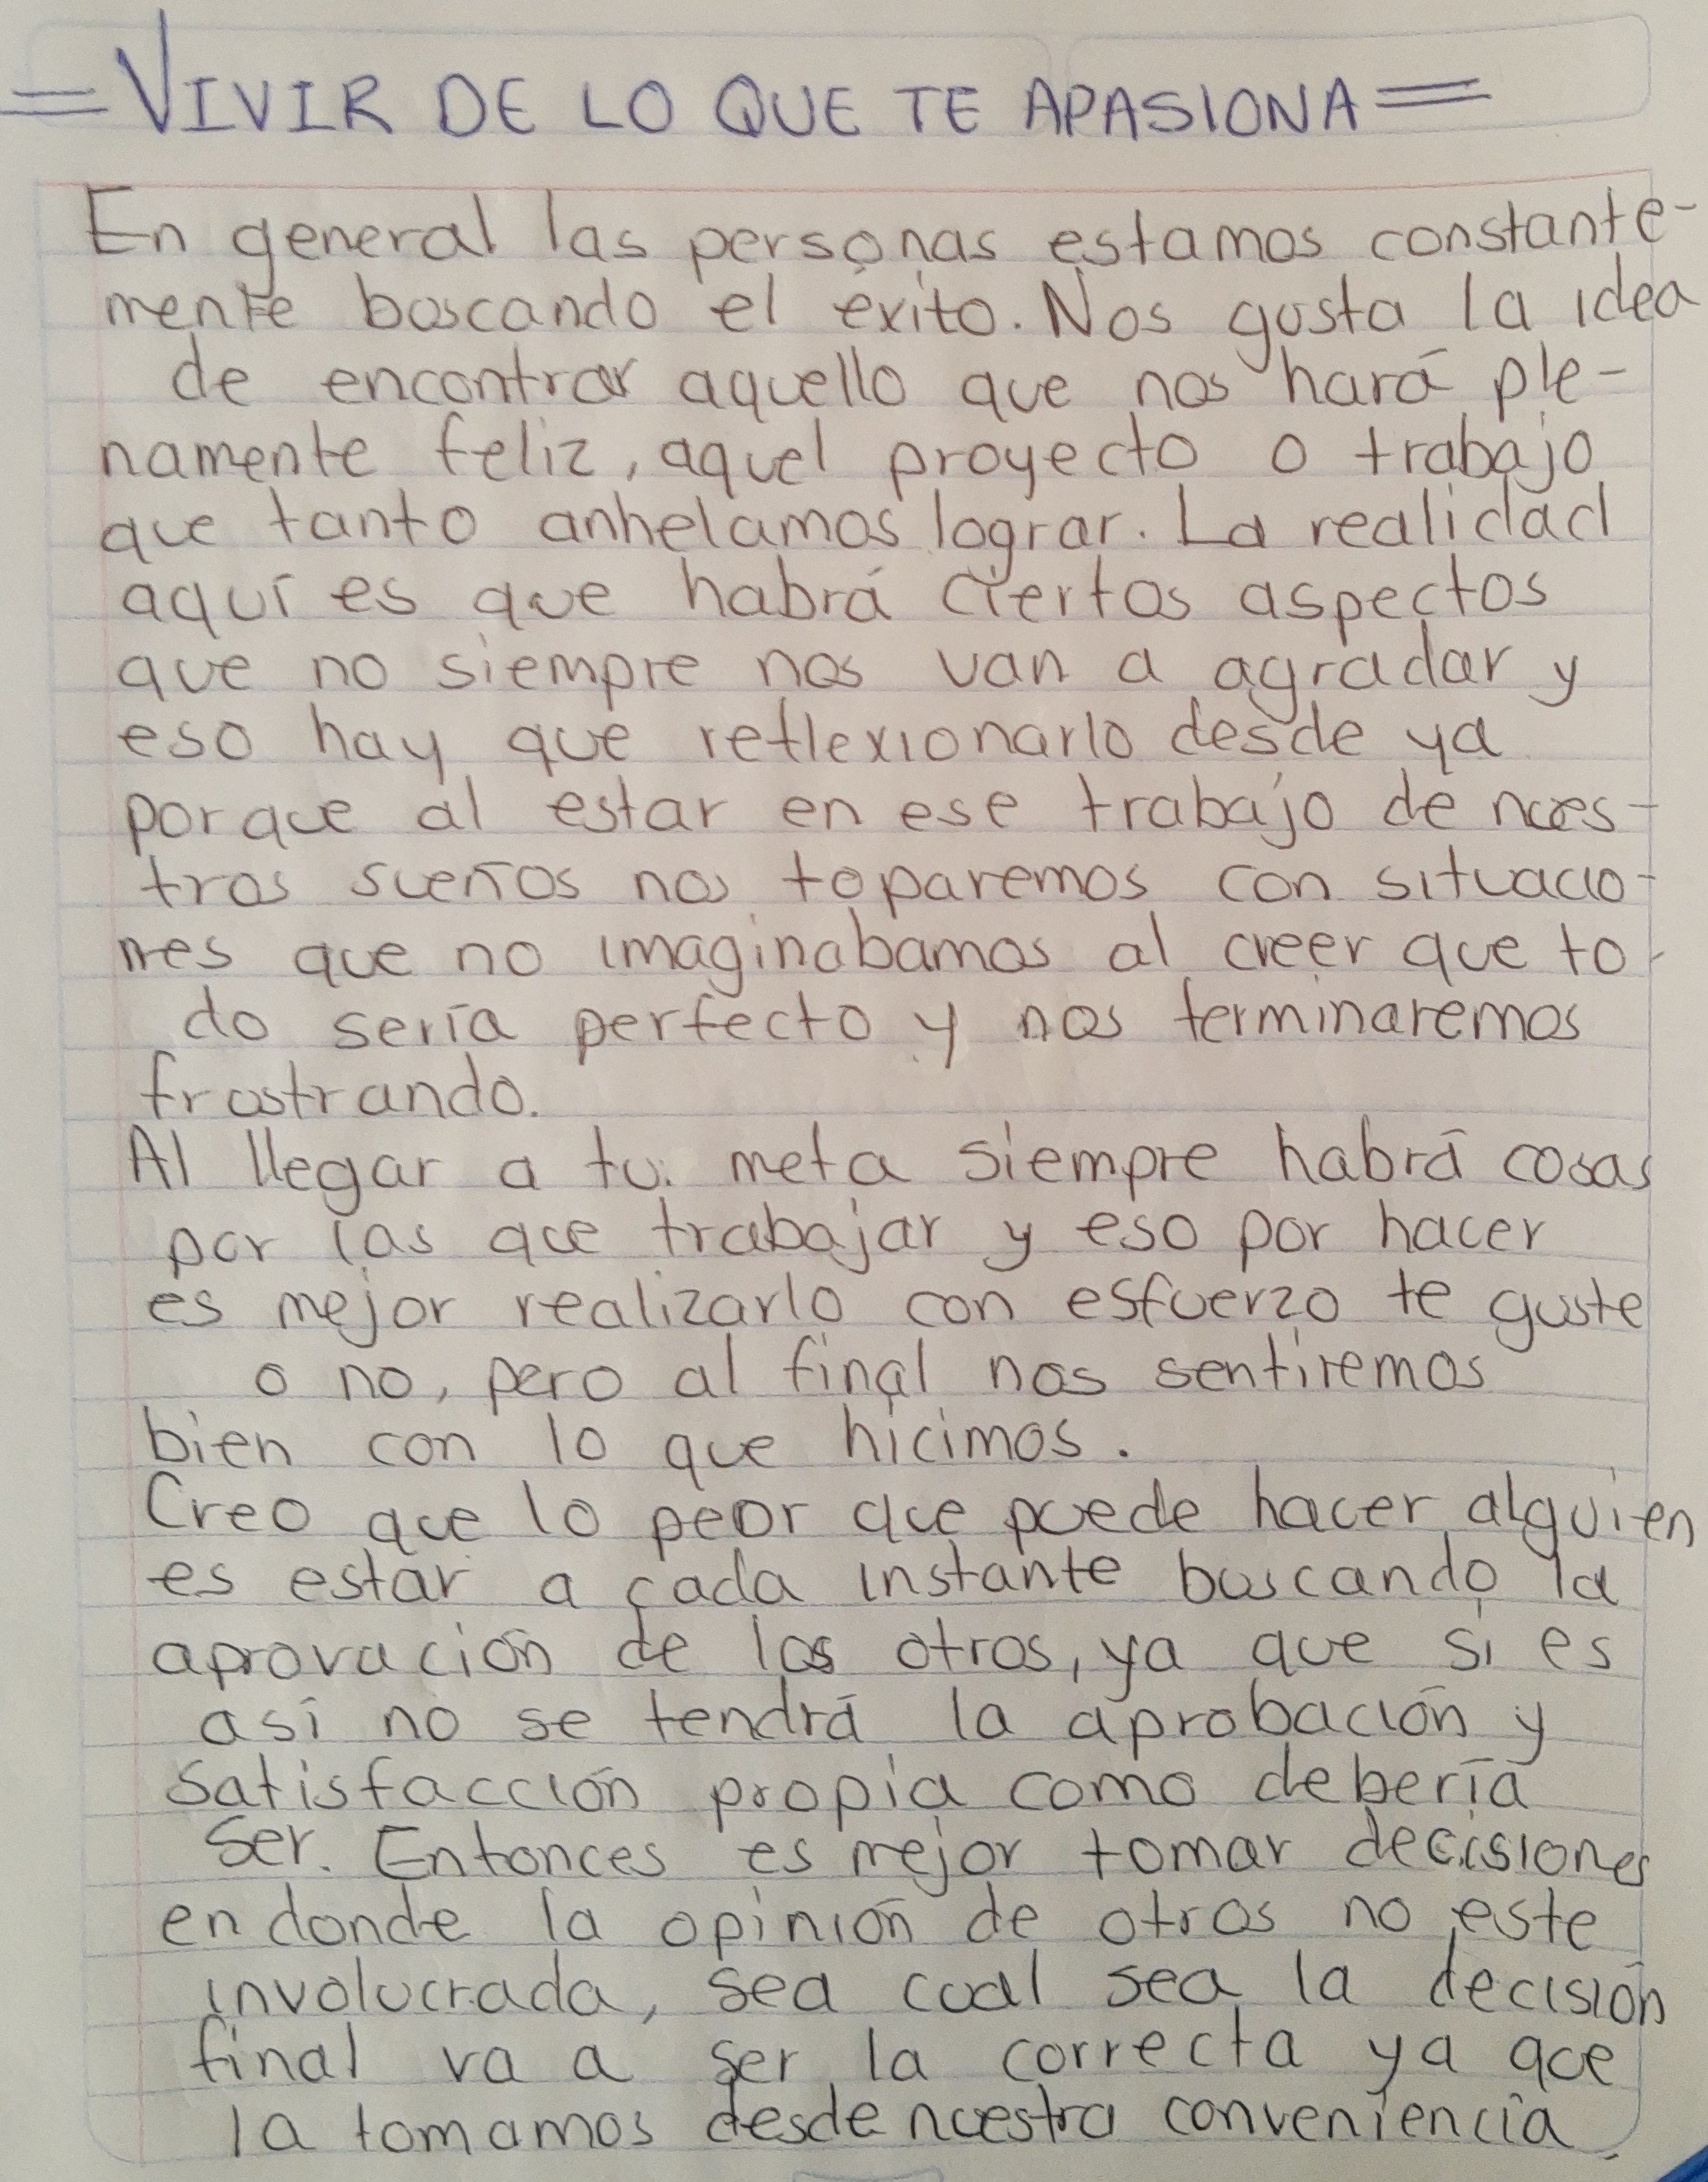 =VIVIR DE LO QUE TE APASIONA=
En general las personas estamos constante-
mente buscando el éxito. Nos gusta la idea
de encontrar aquello que nos hará ple-
namente feliz, aquel proyecto o trabajo
que tanto anhelamos lograr. La realidad
aquí es que habrá ciertos aspectos
que no siempre nos van a agradar y
eso hay que reflexionarlo desde ya
porque al estar en ese trabajo de nues-
tros sueños nos toparemos con situacio-
nes que no imaginabamos al creer que to-
do sería perfecto y nos terminaremos
frustrando.
Al llegar a tu meta siempre habrá cosas
por las que trabajar y eso por hacer
es mejor realizarlo con esfuerzo te guste
o no, pero al final nos sentiremos
bien con lo que hicimos.
Creo que lo peor que puede hacer alguien
es estar a cada instante buscando la
aprovación de los otros, ya que si es
así no se tendrá la aprobación y
satisfacción propia como debería
ser. Entonces es mejor tomar decisiones
en donde la opinión de otros no este
involucrada, sea cual sea la decisión
final va a ser la correcta ya que
la tomamos desde nuestra conveniencia.